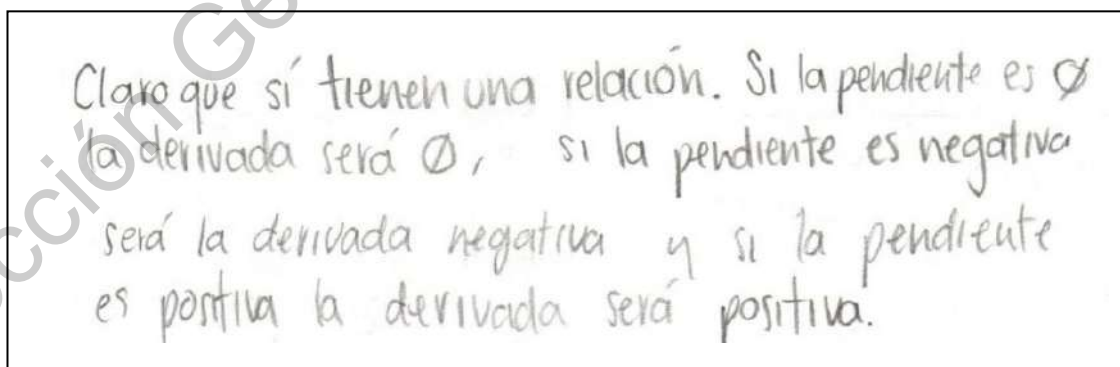 Claro que sí tienen una relación. Si la pendiente es Ø
la derivada será Ø, si la pendiente es negativa
será la derivada negativa y si la pendiente
es positiva la derivada será positiva.